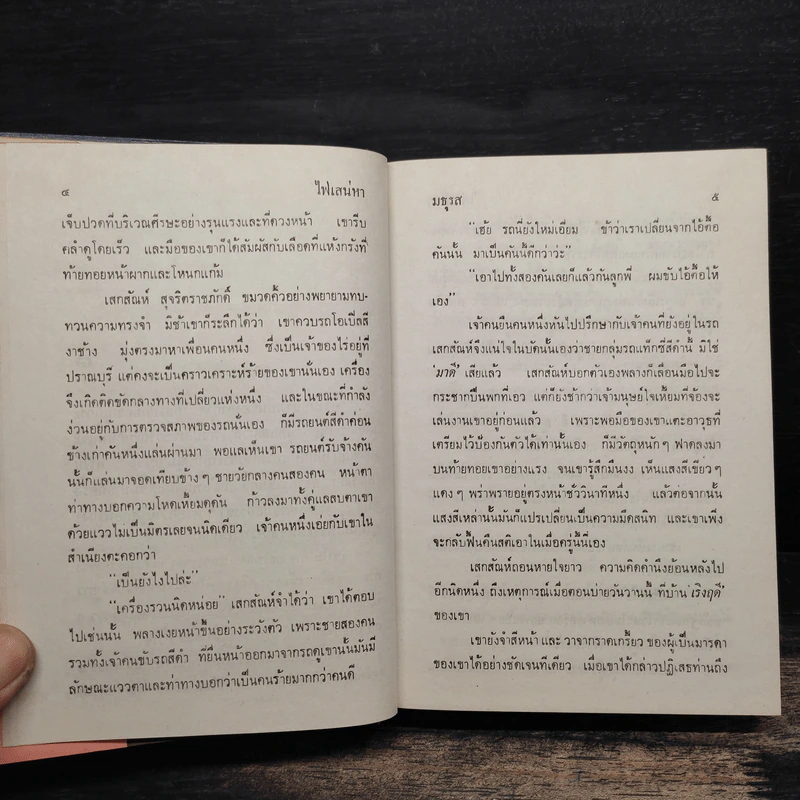 ๔ ไฟเสน่หา
เจ็บปวดที่บริเวณศีรษะอย่างรุนแรงและที่ดวงหน้า เขารีบ
คลำดูโดยเร็ว และมือของเขาก็ได้สัมผัสกับเลือดที่แห้งกรังที่
ท้ายทอยหน้าผากและโหนกแก้ม
เสกสัณห์ สุจริตราชภักดี ขมวดคิ้วอย่างพยายามทบ-
ทวนความทรงจำ มิช้าเขาก็ระลึกได้ว่า เขาควบรถโอเปิ้ลสี
งาช้าง มุ่งตรงมาหาเพื่อนคนหนึ่ง ซึ่งเป็นเจ้าของไร่อยู่ที่
ปราณบุรี แต่คงจะเป็นคราวเคราะห์ร้ายของเขานั่นเอง เครื่อง
จึงเกิดติดขัดกลางทางที่เปลี่ยวแห่งหนึ่ง และในขณะที่กำลัง
ง่วนอยู่กับการตรวจสภาพของรถนั่นเอง ก็มีรถยนต์สีดำค่อน
ข้างเก่าคันหนึ่งแล่นผ่านมา พอแลเห็นเขา รถยนต์รับจ้างคัน
นั้นก็แล่นมาจอดเทียบข้าง ๆ ชายวัยกลางคนสองคน หน้าตา
ท่าทางบอกความโหดเหี้ยมดุดัน ก้าวลงมาทั้งคู่แลสบตาเขา
ด้วยแววไม่เป็นมิตรเลยจนนิดเดียว เจ้าคนหนึ่งเอ่ยกับเขาใน
สำเนียงตะคอกว่า
“เป็นยังไงไปล่ะ”
“เครื่องรวนนิดหน่อย” เสกสัณห์จำได้ว่า เขาได้ตอบ
ไปเช่นนั้น พลางเงยหน้าขึ้นอย่างระวังตัว เพราะชายสองคน
รวมทั้งเจ้าคนขับรถสีดำ ที่ยื่นหน้าออกมาจากรถดูเขานั้นมันมี
ลักษณะแววตาและท่าทางบอกว่าเป็นคนร้ายมากกว่าคนดี
มธุรส ๕
“เฮ้ย รถนี่ยังใหม่เอี่ยม ข้าว่าเราเปลี่ยนจากไอ้ดื้อ
คันนั้น มาเป็นคันนี้ดีกว่าว่ะ”
“เอาไปทั้งสองคันเลยก็แล้วกันลูกพี่ ผมขับไอ้ดื้อให้
เอง”
เจ้าคนยืนคนหนึ่งหันไปปรึกษากับเจ้าคนที่ยังอยู่ในรถ
เสกสัณห์จึงแน่ใจในบัดนั้นเองว่าชายกลุ่มรถแท็กซี่สีดำนี้ มิใช่
‘มาดี’ เสียแล้ว เสกสัณห์บอกตัวเองพลางก็เลื่อนมือไปจะ
กระชากปืนพกที่เอว แต่ก็ยังช้ากว่าเจ้ามนุษย์ใจเหี้ยมที่จ้องจะ
เล่นงานเขาอยู่ก่อนแล้ว เพราะพอมือของเขาแตะอาวุธที่
เตรียมไว้ป้องกันตัวได้เท่านั้นเอง ก็มีวัตถุหนัก ๆ ฟาดลงมา
บนท้ายทอยเขาอย่างแรง จนเขารู้สึกมึนงง เห็นแสงสีเขียว ๆ
แดง ๆ พร่าพรายอยู่ตรงหน้าชั่ววินาทีหนึ่ง แล้วต่อจากนั้น
แสงสีเหล่านั้นมันก็แปรเปลี่ยนเป็นความมืดสนิท และเขาเพิ่ง
จะกลับฟื้นคืนสติเอาในเมื่อครู่นี้นี่เอง
เสกสัณห์ถอนหายใจยาว ความคิดคำนึงย้อนหลังไป
อีกนิดหนึ่ง ถึงเหตุการณ์เมื่อตอนบ่ายวันวานนี้ ที่บ้าน ‘เริงฤดี’
ของเขา
เขายังจำสีหน้า และวาจากราดเกรี้ยว ของผู้เป็นมารดา
ของเขาได้อย่างชัดเจนทีเดียว เมื่อเขาได้กล่าวปฏิเสธท่านถึง